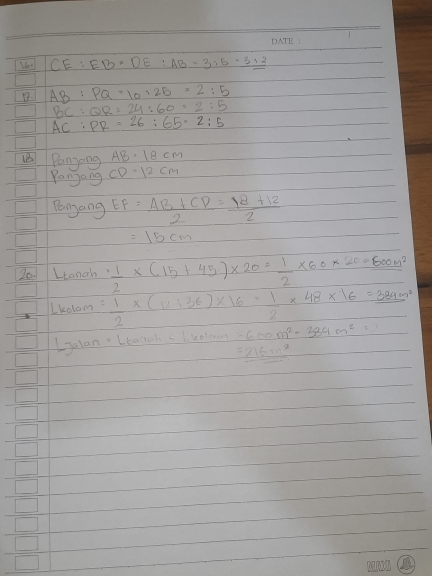 DATE :
16. CE : EB = DE : AB = 3 : 5 = 3 : 2
17. AB : PQ = 10 : 25 = 2 : 5
BC : QR = 24 : 60 = 2 : 5
AC : PR = 26 : 65 = 2 : 5
18. Panjang AB = 18 cm
Panjang CD = 12 cm
Panjang EF = AB + CD / 2 = 18 + 12 / 2
= 15 cm
20. Ltanah = 1/2 × (15 + 45) × 20 = 1/2 × 60 × 20 = 600 m²
Lkolam = 1/2 × (12 + 36) × 16 = 1/2 × 48 × 16 = 384 m²
Ljalan = Ltanah - Lkolam = 600 m² - 384 m² =
= 216 m²